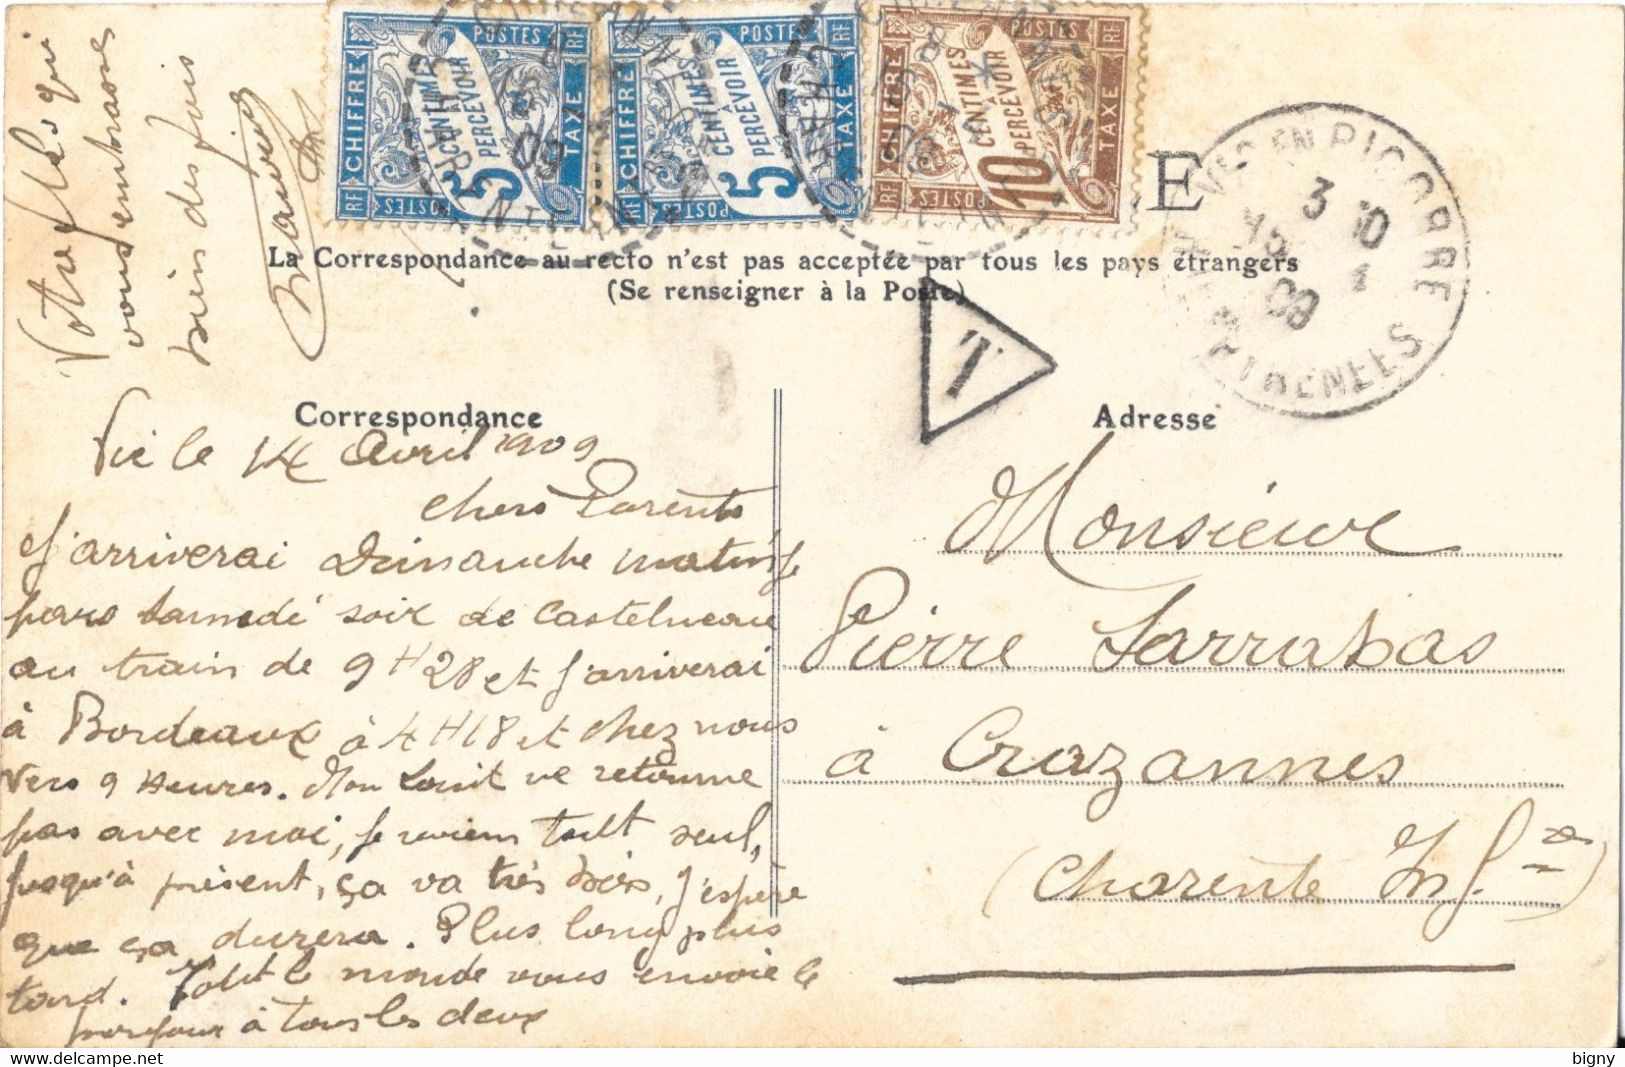 POSTES RF
CHIFFRE
5 CENTIMES À PERCEVOIR
TAXE
RF POSTES
POSTES RF
CHIFFRE
5 CENTIMES À PERCEVOIR
TAXE
RF POSTES
POSTES RF
CHIFFRE
10 CENTIMES À PERCEVOIR
TAXE
RF POSTES
09
E
VIC EN BIGORRE
3 10
09
PYRENEES
La Correspondance au recto n'est pas acceptée par tous les pays étrangers
(Se renseigner à la Poste)
T
Votre fils qui
vous embrasse
bien des fois
Correspondance
Vic le 14 Avril 1909
chers Parents
J'arriverai Dimanche matin je
pars Samedi soir de Castelneau
au train de 9 H 28 et j'arriverai
à Bordeaux à 4 H 18 et chez nous
vers 9 Heures. Mon Louit ne retourne
pas avec moi, je reviens tout seul,
jusqu'à présent, ça va très bien, j'espère
que ça durera. Plus long plus
tard. Tout le monde vous envoie le
bonjour à tous les deux
Adresse
Monsieur
Pierre Larrabas
à Crazannes
(Charente Inf.re)
bigny